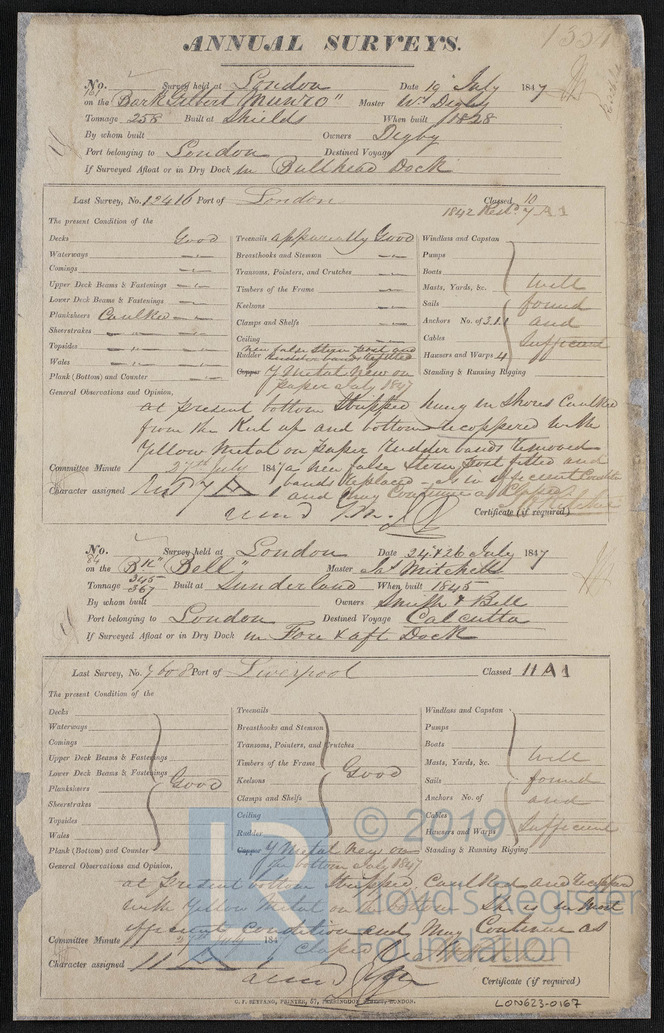 1354
ANNUAL SURVEYS.
No. Survey held at London Date 19 July 1847
on the Bark "Gilbert Munro" Master Wm Digby
Tonnage 258 Built at Shields When built 1828
By whom built Owners Digby
Port belonging to London Destined Voyage
If Surveyed Afloat or in Dry Dock in Bullhead Dock
Last Survey, No. 12416 Port of London Classed 10
1842 Restd 7 A 1
The present Condition of the
Decks Good Treenails apparently Good Windlass and Capstan
Waterways Breasthooks and Stemson Pumps
Comings Transoms, Pointers, and Crutches Boats
Upper Deck Beams & Fastenings Timbers of the Frame Masts, Yards, &c. Well
Lower Deck Beams & Fastenings Keelsons Sails found
Plansheers Caulked Clamps and Shelfs Anchors No. of 3.1.1 and
Sheerstrakes Ceiling Cables Sufficient
Topsides Rudder new false Stern post and Rudder bands refitted Hawsers and Warps 4
Wales Copper Y Metal New on Standing & Running Rigging
Plank (Bottom) and Counter paper July 1847
General Observations and Opinion,
at present bottom Stripped hung in Shores Caulked
from the Keel up and bottom recoppered with
Yellow Metal on paper Rudder bands removed
Committee Minute 27th July 1847 a new false Stern post fitted and
Character assigned Rest 7 A 1 bands replaced - is in efficient Condtn
and may Continue as Classed
Certificate (if required)
No. Survey held at London Date 24 & 26 July 1847
64
on the Bk "Bell" Master Jas Mitchell
Tonnage 345 367 Built at Sunderland When built 1845
By whom built Owners Smith & Bell
Port belonging to London Destined Voyage Calcutta
If Surveyed Afloat or in Dry Dock in Fore & aft Dock
Last Survey, No. 7608 Port of Liverpool Classed 11 A 1
The present Condition of the
Decks Treenails Windlass and Capstan
Waterways Breasthooks and Stemson Pumps
Comings Transoms, Pointers, and Crutches Boats
Upper Deck Beams & Fastenings Timbers of the Frame Masts, Yards, &c. Well
Lower Deck Beams & Fastenings Good Keelsons Good Sails found
Plansheers Clamps and Shelfs Anchors No. of and
Sheerstrakes Ceiling Cables Sufficient
Topsides Rudder Hawsers and Warps
Wales Copper Y Metal New on Standing & Running Rigging
Plank (Bottom) and Counter the bottom July 1847
General Observations and Opinion,
at present bottom Stripped Caulked and recopperd
with Yellow Metal on She is in Most
efficient Condition and May Continue as
Committee Minute 27th July 184
Character assigned 11 A 1
Certificate (if required)
© 2019
Lloyd's Register
Foundation
C. F. SEYFANG, PRINTER, 57, FARRINGDON STREET, LONDON.
LON623-0167